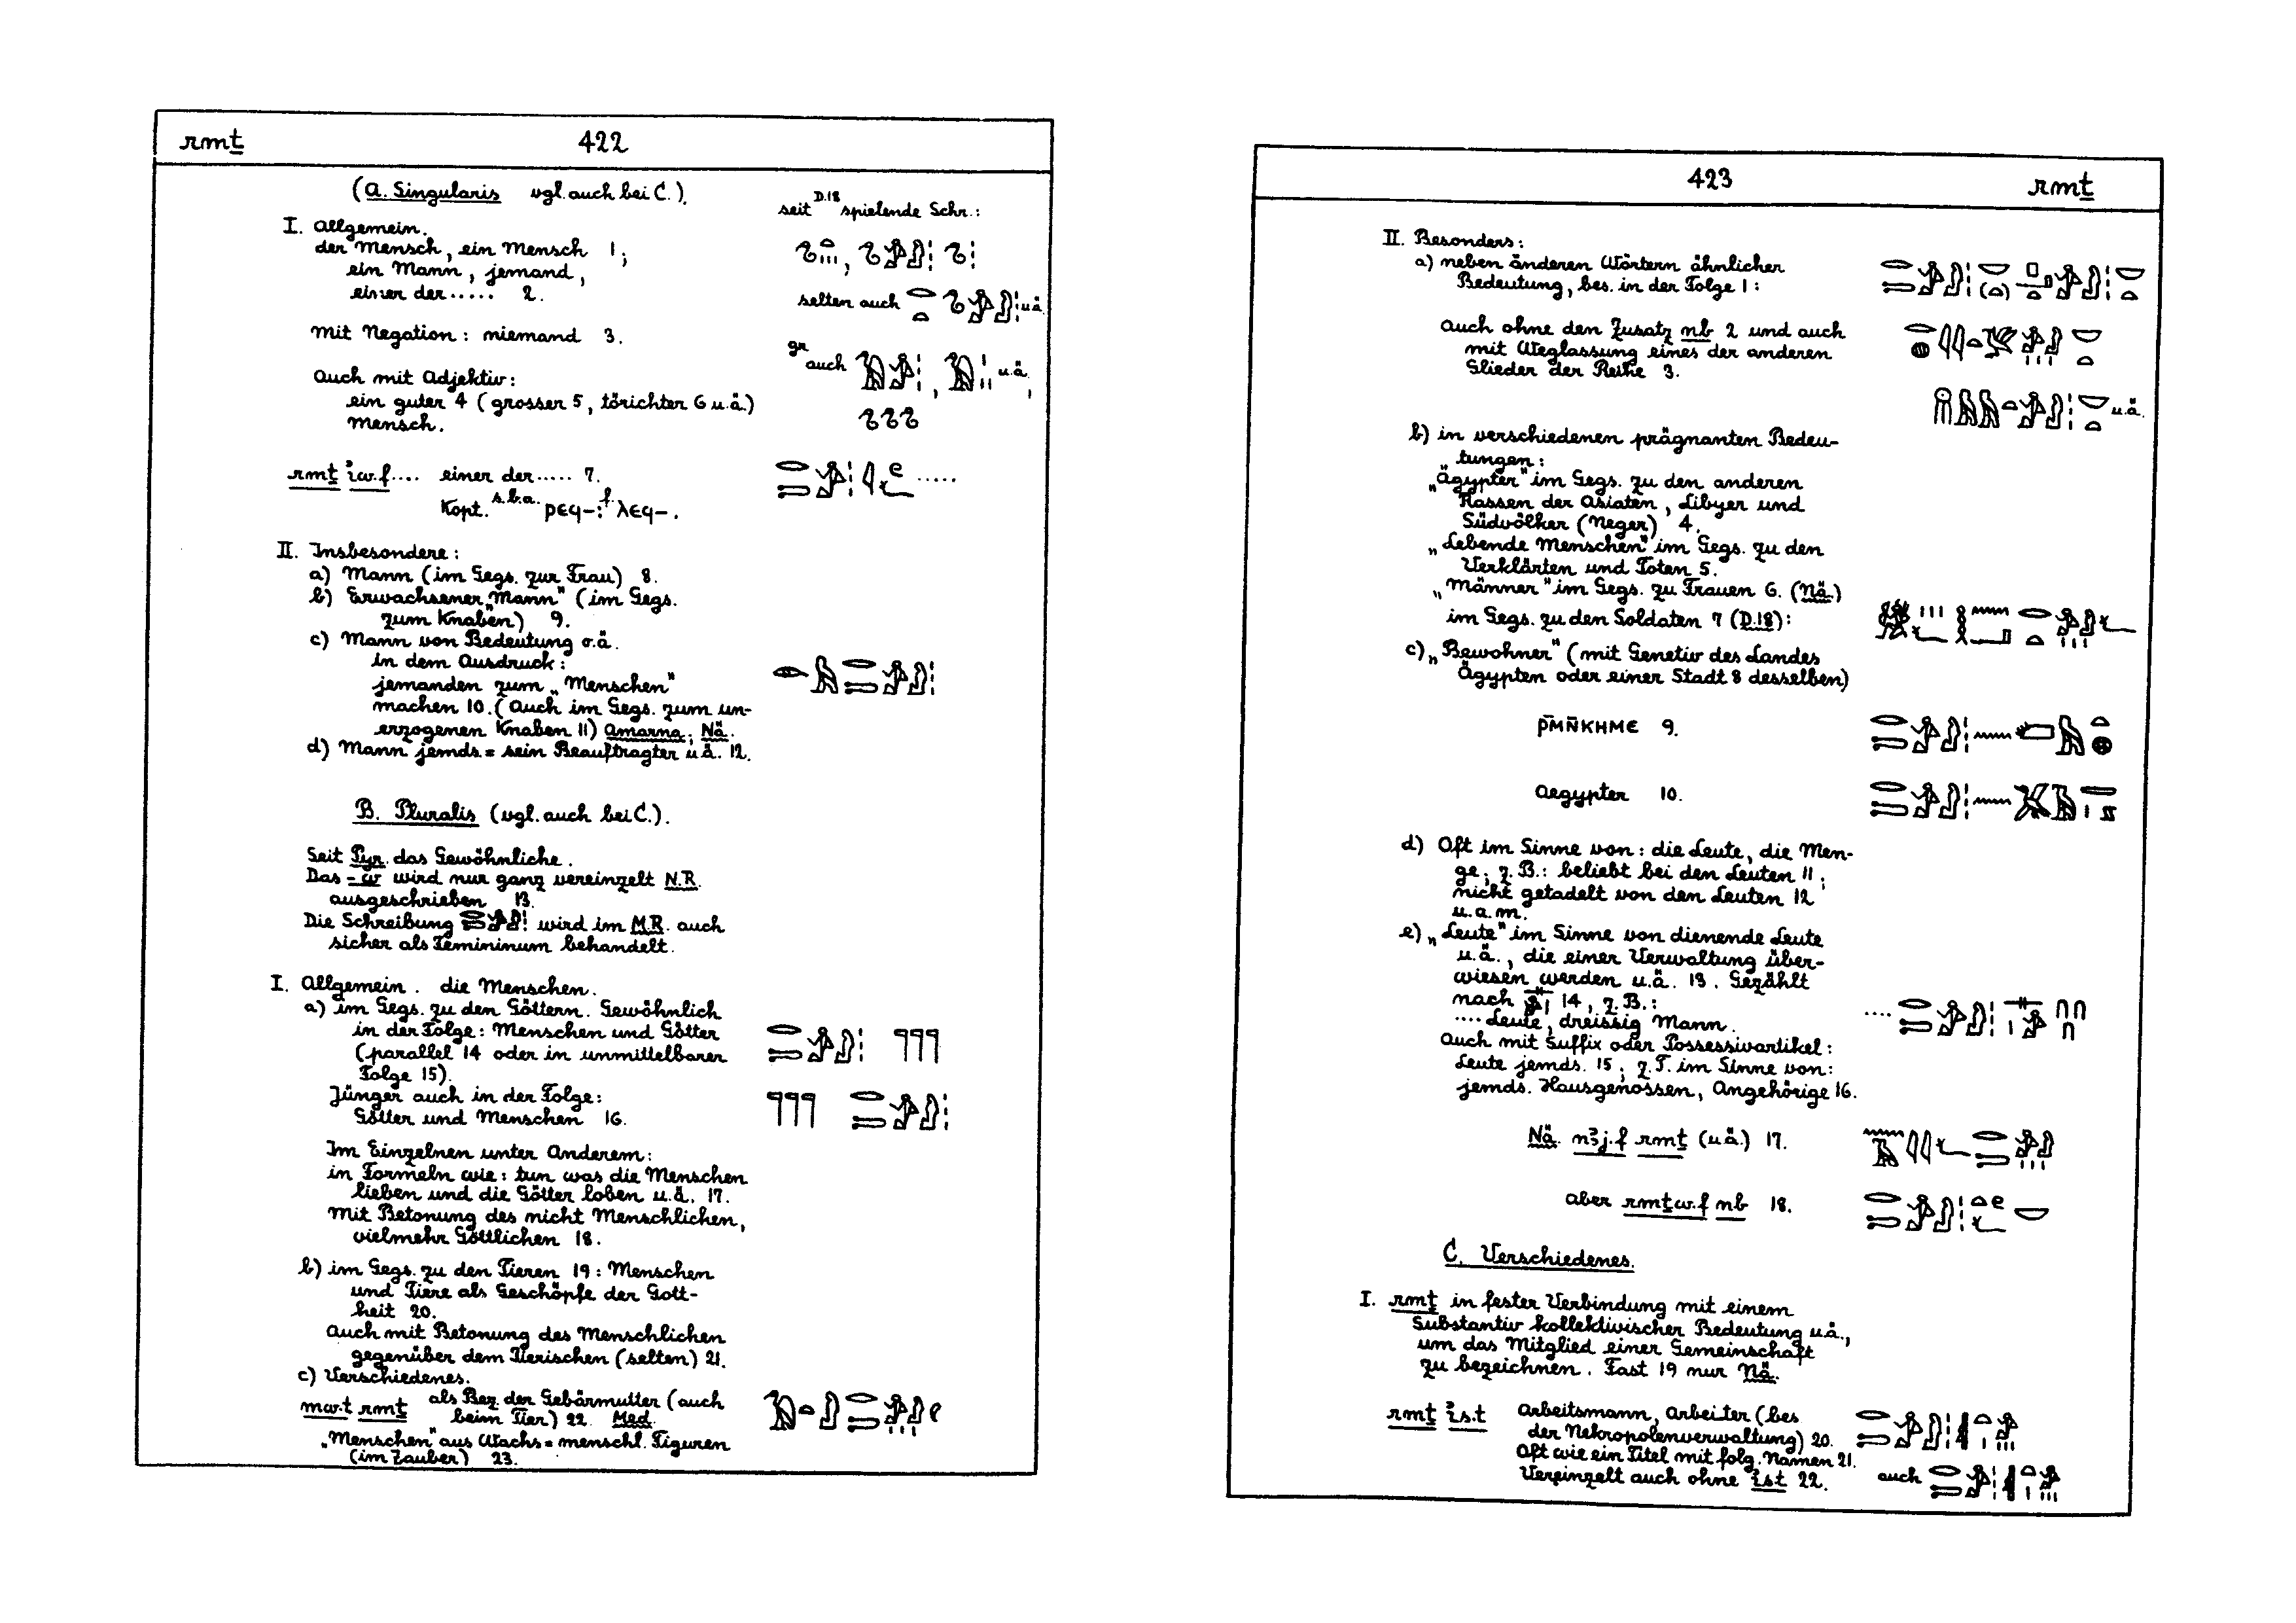 rmṯ 422
(A. Singularis vgl. auch bei C.).
seit D.18 spielende Schr.:
I. Allgemein.
der Mensch, ein Mensch 1;
ein Mann, jemand,
einer der ..... 2.
selten auch u.ä.
Mit Negation: niemand 3.
gr auch u.ä.,
Auch mit Adjektiv:
ein guter 4 (grosser 5, törichter 6 u.ä.)
Mensch.
rmṯ ỉw.f .... einer der ..... 7.
Kopt. s.b.a. ⲣⲉϥ-: f. ⲗⲉϥ-.
II. Insbesondere:
a) Mann (im Gegs. zur Frau) 8.
b) Erwachsener „Mann" (im Gegs.
zum Knaben) 9.
c) Mann von Bedeutung o.ä.
in dem Ausdruck:
jemanden zum „Menschen"
machen 10. (Auch im Gegs. zum un-
erzogenen Knaben 11) Amarna; Nä.
d) Mann jemds = sein Beauftragter u.ä. 12.
B. Pluralis (vgl. auch bei C.).
Seit Pyr. das Gewöhnliche.
Das -w wird nur ganz vereinzelt N.R.
ausgeschrieben 13.
Die Schreibung wird im M.R. auch
sicher als Femininum behandelt.
I. Allgemein. die Menschen.
a) im Gegs. zu den Göttern. Gewöhnlich
in der Folge: Menschen und Götter
(parallel 14 oder in unmittelbarer
Folge 15).
Jünger auch in der Folge:
Götter und Menschen 16.
Im Einzelnen unter Anderem:
in Formeln wie: tun was die Menschen
lieben und die Götter loben u.ä. 17.
Mit Betonung des nicht Menschlichen,
vielmehr Göttlichen 18.
b) im Gegs. zu den Tieren 19: Menschen
und Tiere als Geschöpfe der Gott-
heit 20.
Auch mit Betonung des Menschlichen
gegenüber dem Tierischen (selten) 21.
c) Verschiedenes.
mw.t rmṯ als Bez. der Gebärmutter (auch
beim Tier) 22. Med.
„Menschen" aus Wachs = menschl. Figuren
(im Zauber) 23.
423 rmṯ
II. Besonders:
a) neben anderen Wörtern ähnlicher
Bedeutung, bes. in der Folge 1:
Auch ohne den Zusatz nb 2 und auch
mit Weglassung eines der anderen
Glieder der Reihe 3.
u.ä.
b) in verschiedenen prägnanten Bedeu-
tungen:
„Ägypter" im Gegs. zu den anderen
Rassen der Asiaten, Libyer und
Südvölker (Neger) 4.
„Lebende Menschen" im Gegs. zu den
Verklärten und Toten 5.
„Männer" im Gegs. zu Frauen 6. (Nä.)
im Gegs. zu den Soldaten 7 (D.18):
c) „Bewohner" (mit Genetiv des Landes
Ägypten oder einer Stadt 8 desselben)
ⲣ̄ⲙⲛ̄ⲕⲏⲙⲉ 9.
Aegypter 10.
d) Oft im Sinne von: die Leute, die Men-
ge; z.B.: beliebt bei den Leuten 11;
nicht getadelt von den Leuten 12
u.a.m.
e) „Leute" im Sinne von dienende Leute
u.ä., die einer Verwaltung über-
wiesen werden u.ä. 13. Gezählt
nach 14, z.B.:
.... Leute, dreissig Mann.
Auch mit Suffix oder Possessivartikel:
Leute jemds. 15; z.T. im Sinne von:
jemds. Hausgenossen, Angehörige 16.
Nä. nꜣj.f rmṯ (u.ä.) 17.
aber rmṯw.f nb 18.
C. Verschiedenes.
I. rmṯ in fester Verbindung mit einem
Substantiv kollektivischer Bedeutung u.ä.,
um das Mitglied einer Gemeinschaft
zu bezeichnen. Fast 19 nur Nä.
rmṯ ỉs.t Arbeitsmann, Arbeiter (bes
der Nekropolenverwaltung) 20.
Oft wie ein Titel mit folg. Namen 21.
Vereinzelt auch ohne ỉs.t 22. auch